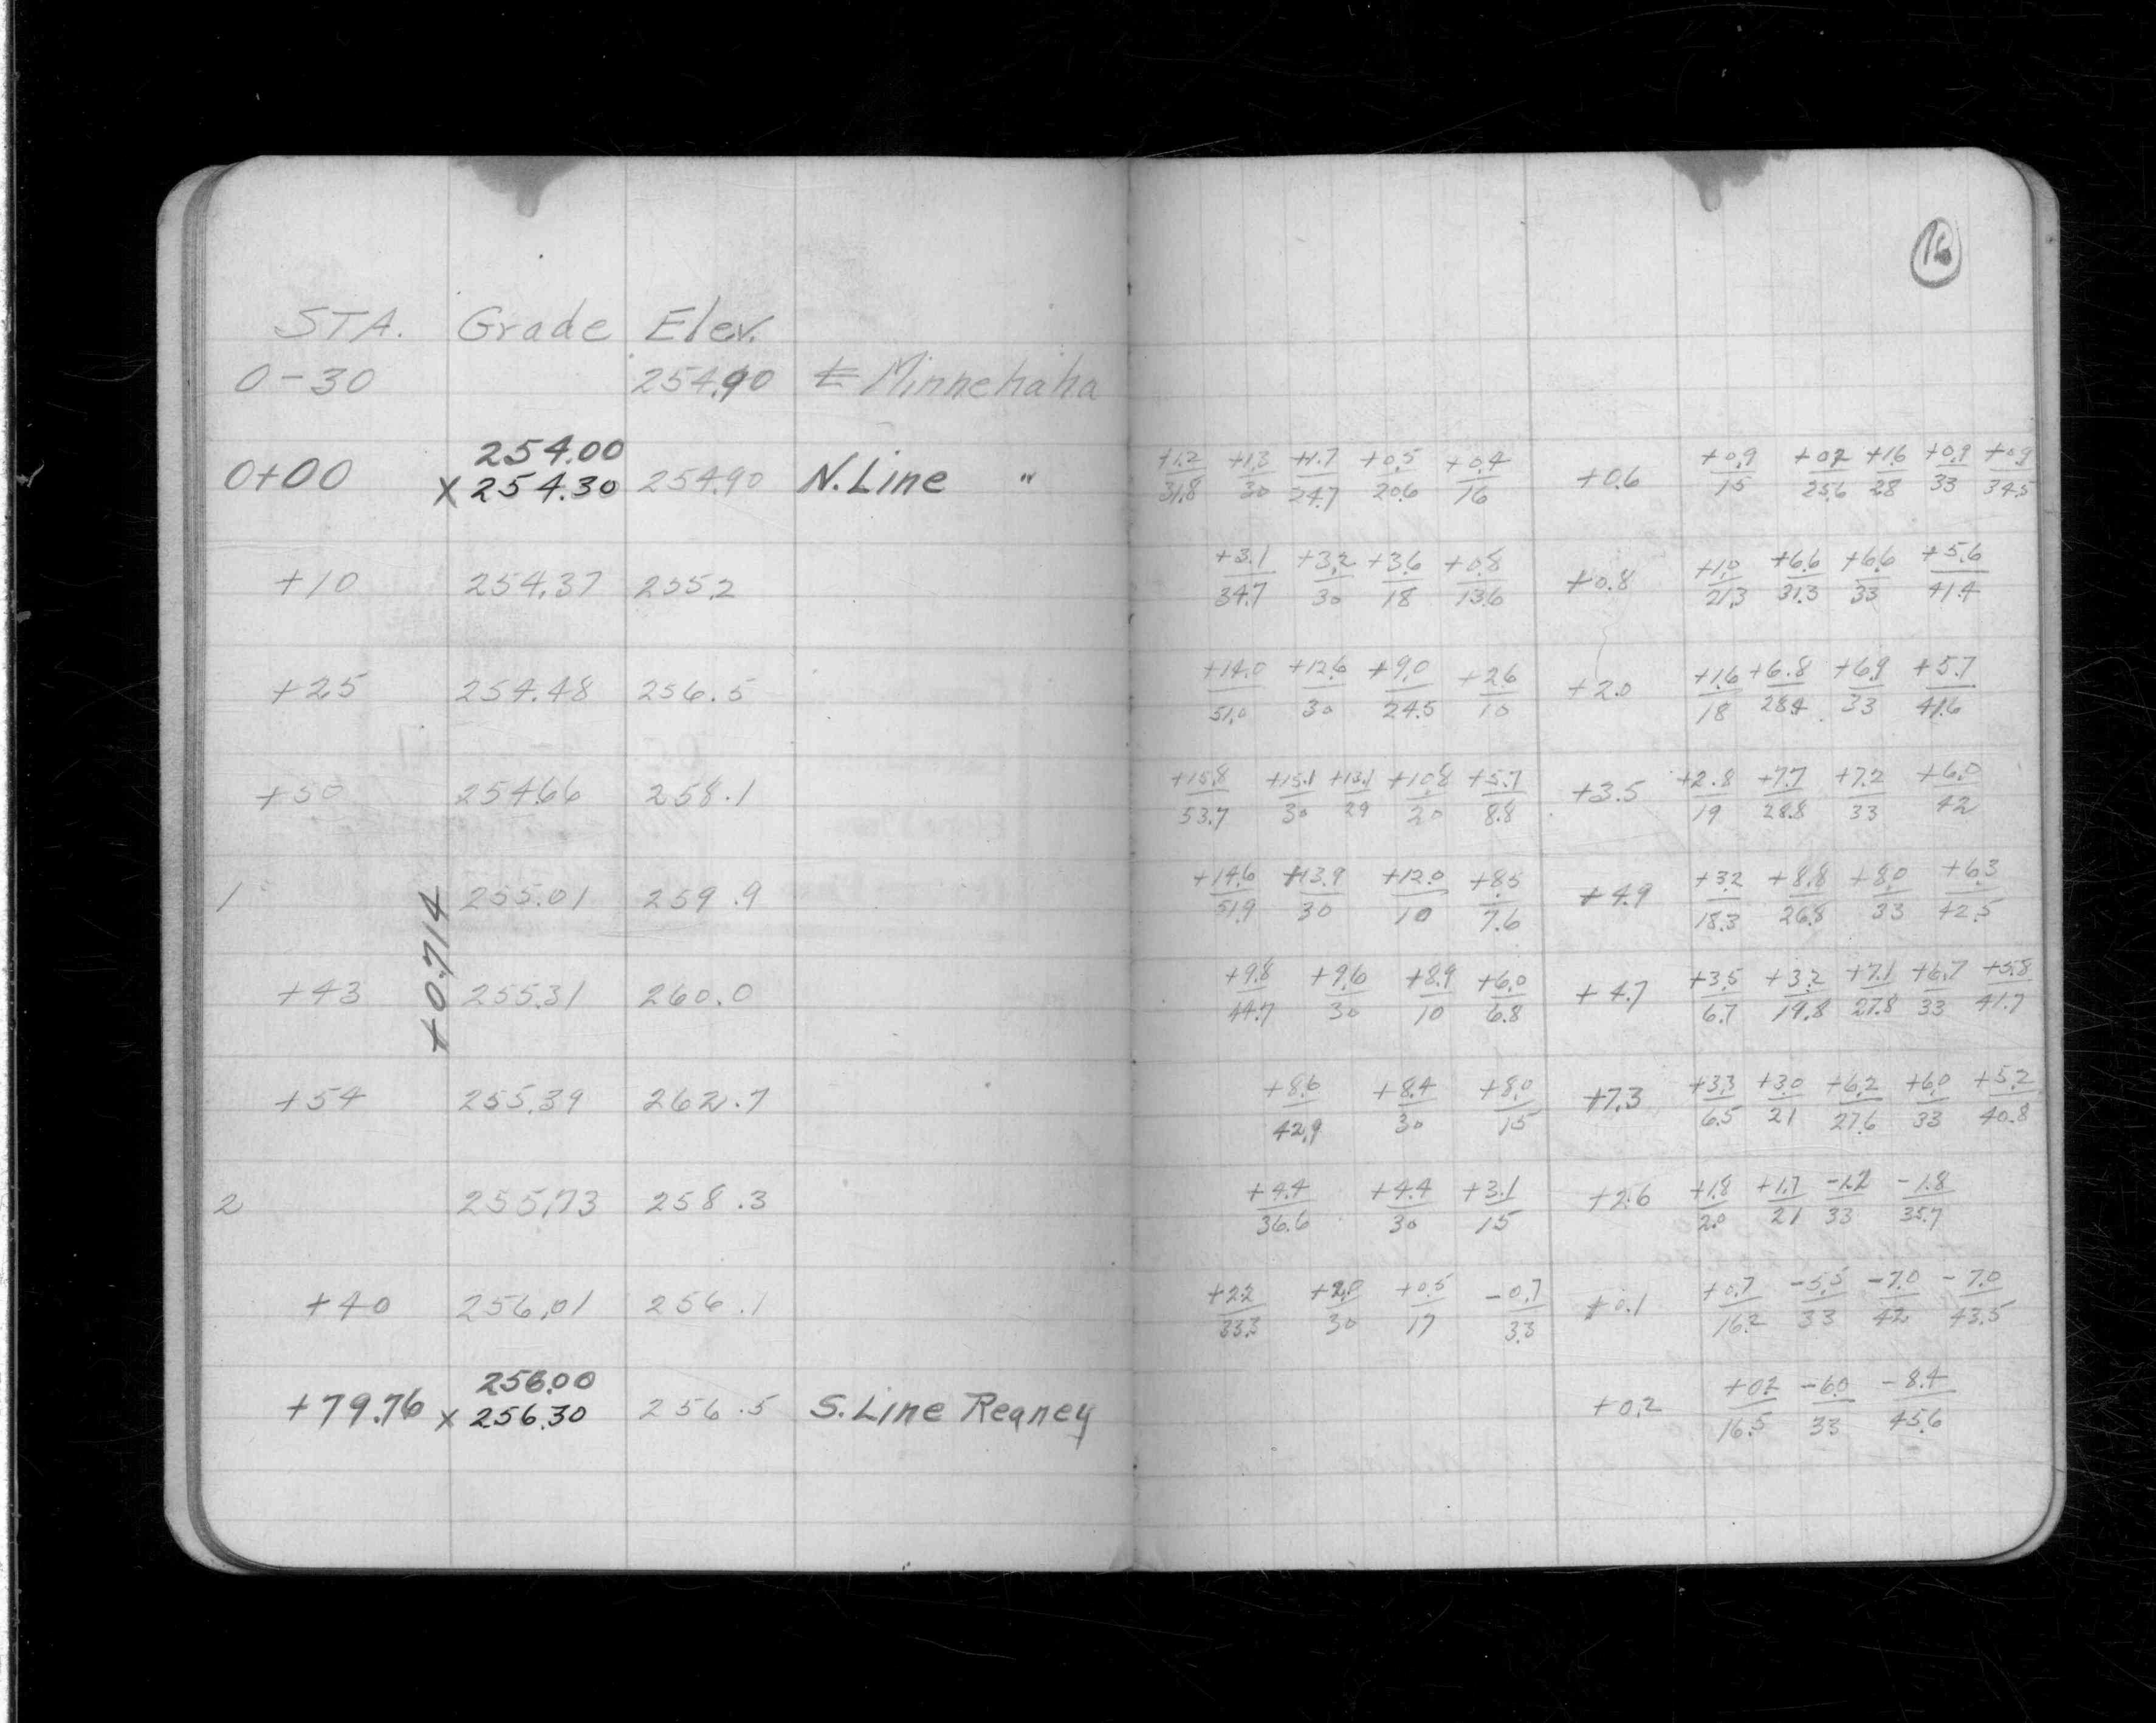 16
STA. Grade Elev.
0-30 254.90 ℄ Minnehaha
254.00
0+00 x 254.30 254.90 N. Line " +1.2/31.8 +1.3/30 +1.7/24.7 +0.5/20.6 +0.4/16 +0.6 +0.9/15 +0.2/25.6 +1.6/28 +0.9/33 +0.9/34.5
+10 254.37 255.2 +3.1/34.7 +3.2/30 +3.6/18 +0.8/13.6 +0.8 +1.0/21.3 +6.6/31.3 +6.6/33 +5.6/41.4
+25 254.48 256.5 +14.0/51.0 +12.6/30 +9.0/24.5 +2.6/10 +2.0 +1.6/18 +6.8/28.4 +6.9/33 +5.7/41.6
+50 254.66 258.1 +15.8/53.7 +15.1/30 +13.1/29 +10.8/20 +5.7/8.8 +3.5 +2.8/19 +7.7/28.8 +7.2/33 +6.0/42
1 255.01 259.9 +14.6/51.9 +13.9/30 +12.0/10 +8.5/7.6 +4.9 +3.2/18.3 +8.8/26.8 +8.0/33 +6.3/42.5
+0.714
+43 255.31 260.0 +9.8/44.7 +9.6/30 +8.9/10 +6.0/6.8 +4.7 +3.5/6.7 +3.2/19.8 +7.1/27.8 +6.7/33 +5.8/41.7
+54 255.39 262.7 +8.6/42.9 +8.4/30 +8.0/15 +7.3 +3.3/6.5 +3.0/21 +6.2/27.6 +6.0/33 +5.2/40.8
2 255.73 258.3 +4.4/36.6 +4.4/30 +3.1/15 +2.6 +1.8/20 +1.7/21 -1.2/33 -1.8/35.7
+40 256.01 256.1 +2.2/33.3 +2.0/30 +0.5/17 -0.7/3.3 +0.1 +0.7/16.2 -5.5/33 -7.0/42 -7.0/43.5
256.00
+79.76 x 256.30 256.5 S. Line Reaney +0.2 +0.2/16.5 -6.0/33 -8.4/45.6